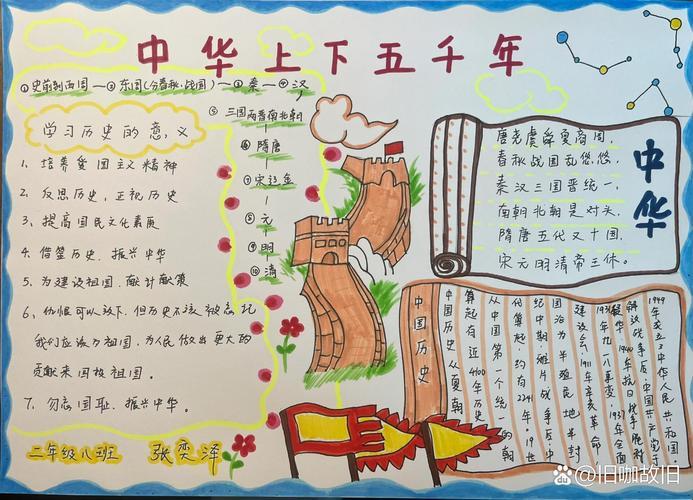 中华上下五千年
①史前到西周—②东周(分春秋、战国)—③秦—④汉
⑤三国两晋南北朝
⑥隋唐
⑦宋辽金
⑧元
⑨明
⑩清
学习历史的意义
1、培养爱国主义精神
2、反思历史,正视历史
3、提高国民文化素质
4、借鉴历史、振兴中华
5、为建设祖国、献计献策
6、仇恨可以放下,但历史不该被忘记
我们应该为祖国、为人民做出更大的
贡献来回报祖国。
7、勿忘国耻、振兴中华。
二年级八班 张奕泽
中华
唐尧虞舜夏商周,
春秋战国乱悠悠,
秦汉三国晋统一,
南朝北朝是对头,
隋唐五代又十国,
宋元明清帝王休。
中国历史
中国历史从夏朝
算起有近4100年历史
从中国第一个统一的朝
代算起,约有2241年。19世
纪中期鸦片战争后,中
国沦为半殖民地半封
建社会。1911年辛亥革命
1931年九一八事变,1937年全面
1949年成立了中华人民共和国。
百度
@旧咖故旧